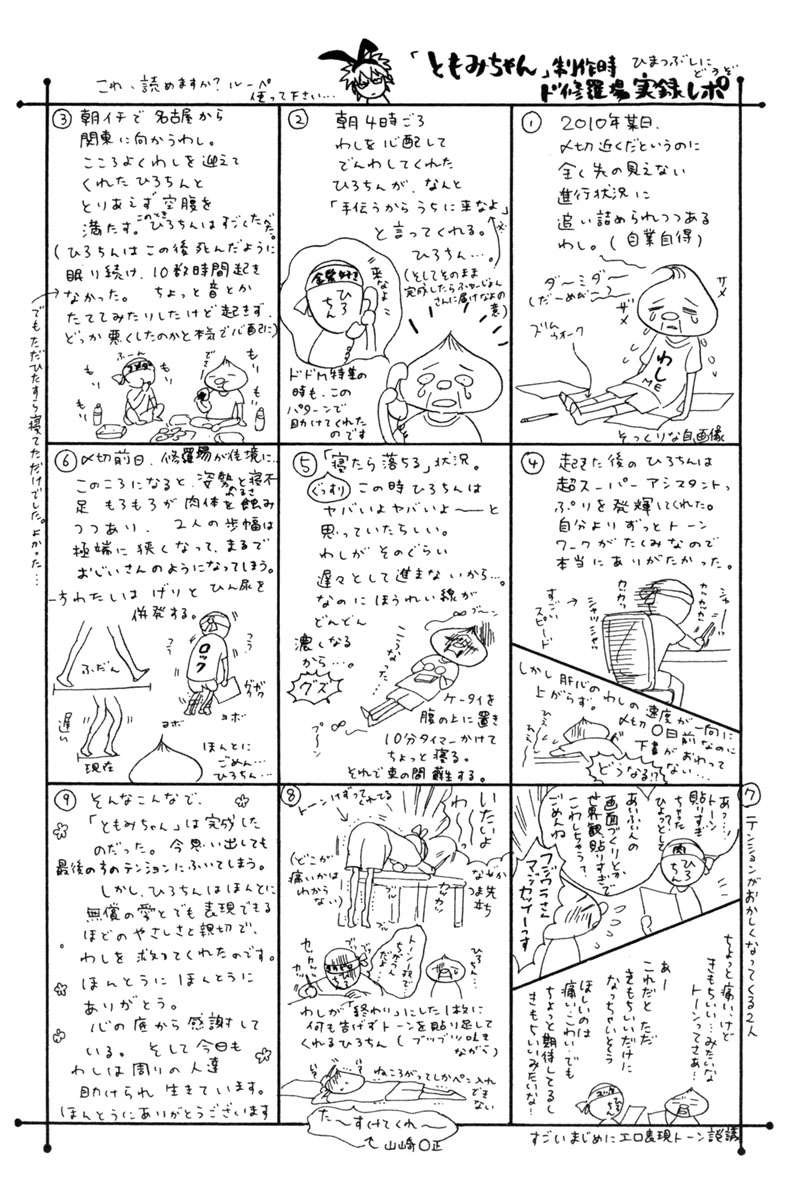 「ともみちゃん」制作時
ひまつぶしに
どうぞ
ド修羅場実録レポ
これ、読めますか?ルーペ
使って下さい…
①
2010年某日、
〆切近くだというのに
全く先の見えない
進行状況に
追い詰められつつある
わし。(自業自得)
ダーミダー
(だーめだ〜)
サメ
ザメ
ズム
ウォーク
わし
ME
そっくりな自画像
②
朝4時ごろ
わしを心配して
でんわしてくれた
ひろちんが、なんと
「手伝うからうちに来なよ」
と言ってくれる。
ひろちん…。
(そしてそのまま
完成したら
さんに届けなよの
意)
来なよ
ひろ
ちん
ドドM特集の
時も、この
パターンで
助けてくれた
のです
③
朝イチで名古屋から
関東に向かうわし。
こころよくわしを迎えて
くれたひろちんと
とりあえず空腹を
満たす。このときひろちんはすごくただ。
(ひろちんはこの後死んだように
眠り続け、10数時間起き
なかった。 ちょっと音とか
たててみたりしたけど起きず、
どっか悪くしたのかと本気で心配に)
でもただひたすら寝てただけでした。よかった…
ふーん
でさ
もり
もり
もり
もり
④
起きた後のひろちんは
超スーパーアシスタントっ
ぷりを発揮してくれた。
自分よりずっとトーン
ワークがたくみなので
本当にありがたかった。
すごい
スピード
シャッ
シャッ
カッカッ
カッカッ
しかし肝心のわしの速度が一向に
上がらず。
〆切〇日前なのに
下書がおわって
ない…
どうなる!?
⑤
「寝たら落ちる」状況。
ぐっすり
この時ひろちんは
ヤバいよヤバいよ〜と
思っていたらしい。
わしがそのぐらい
遅々として進まないから…。
なのにほうれい線が
どんどん
濃くなる
から…。
グズ
ブ〜ン
こうなった…
プ〜ン
ケータイを
腹の上に置き
10分タイマーかけて
ちょっと寝る。
それで束の間蘇生する。
⑥
〆切前日、修羅場が佳境に…
このころになると、姿勢と寝不
足もろもろが肉体を蝕み
つつあり、 2人の歩幅は
極端に狭くなって、まるで
おじいさんのようになってしまう。
わたしはげりとひん尿を
併発する。
ふだん
遅い
現在
ロック
ヨボ
ヨボ
ほんとに
ごめん…
ひろちん…
⑦
テンションがおかしくなってくる2人
あっ…、
トーン
貼りすぎ
ちゃた
ひょっとして
肉
ひろ
ちん
あいぶんの
画面づくりとか
世界観貼りすぎで
こわしちゃうて、
ごめんね
フジワラさん
マジゼップーっす
ちょっと痛いけど
きもちいい…みたいな
トーンってさあ…
あー
これだとただ
きもちいいだけに
なっちゃいそう
ほしいのは
痛いこわい、でも
ちょっと期待してるし
きもちいいみたいな!
すごいまじめにエロ表現トーン談議
⑧
トーンけずってくれてる
いたいよ
わ
(どこが
痛いかは
わから
ない)
なぜか
つま先
立ち
カッカッ
カッカッ
トーン1枚で
ちがうん
だよ
ひろちん…
わしが「終わり」にした1枚に
何も告げずトーンを貼り足して
くれるひろちん(ブツブツ吐き
ながら)
ねころがってしかペン入れ
できない
た〜すけてくれ〜
山崎〇正
⑨
そんなこんなで、
「ともみちゃん」は完成した
のだった。今思い出しても
最後の方のテンションにふいてしまう。
しかし、ひろちんはほんとに
無償の愛とでも表現できる
ほどのやさしさと親切で、
わしを救ってくれたのです。
ほんとうにほんとうに
ありがとう。
心の底から感謝して
いる。 そして今日も
わしは周りの人達
助けられ生きています。
ほんとうにありがとうございます